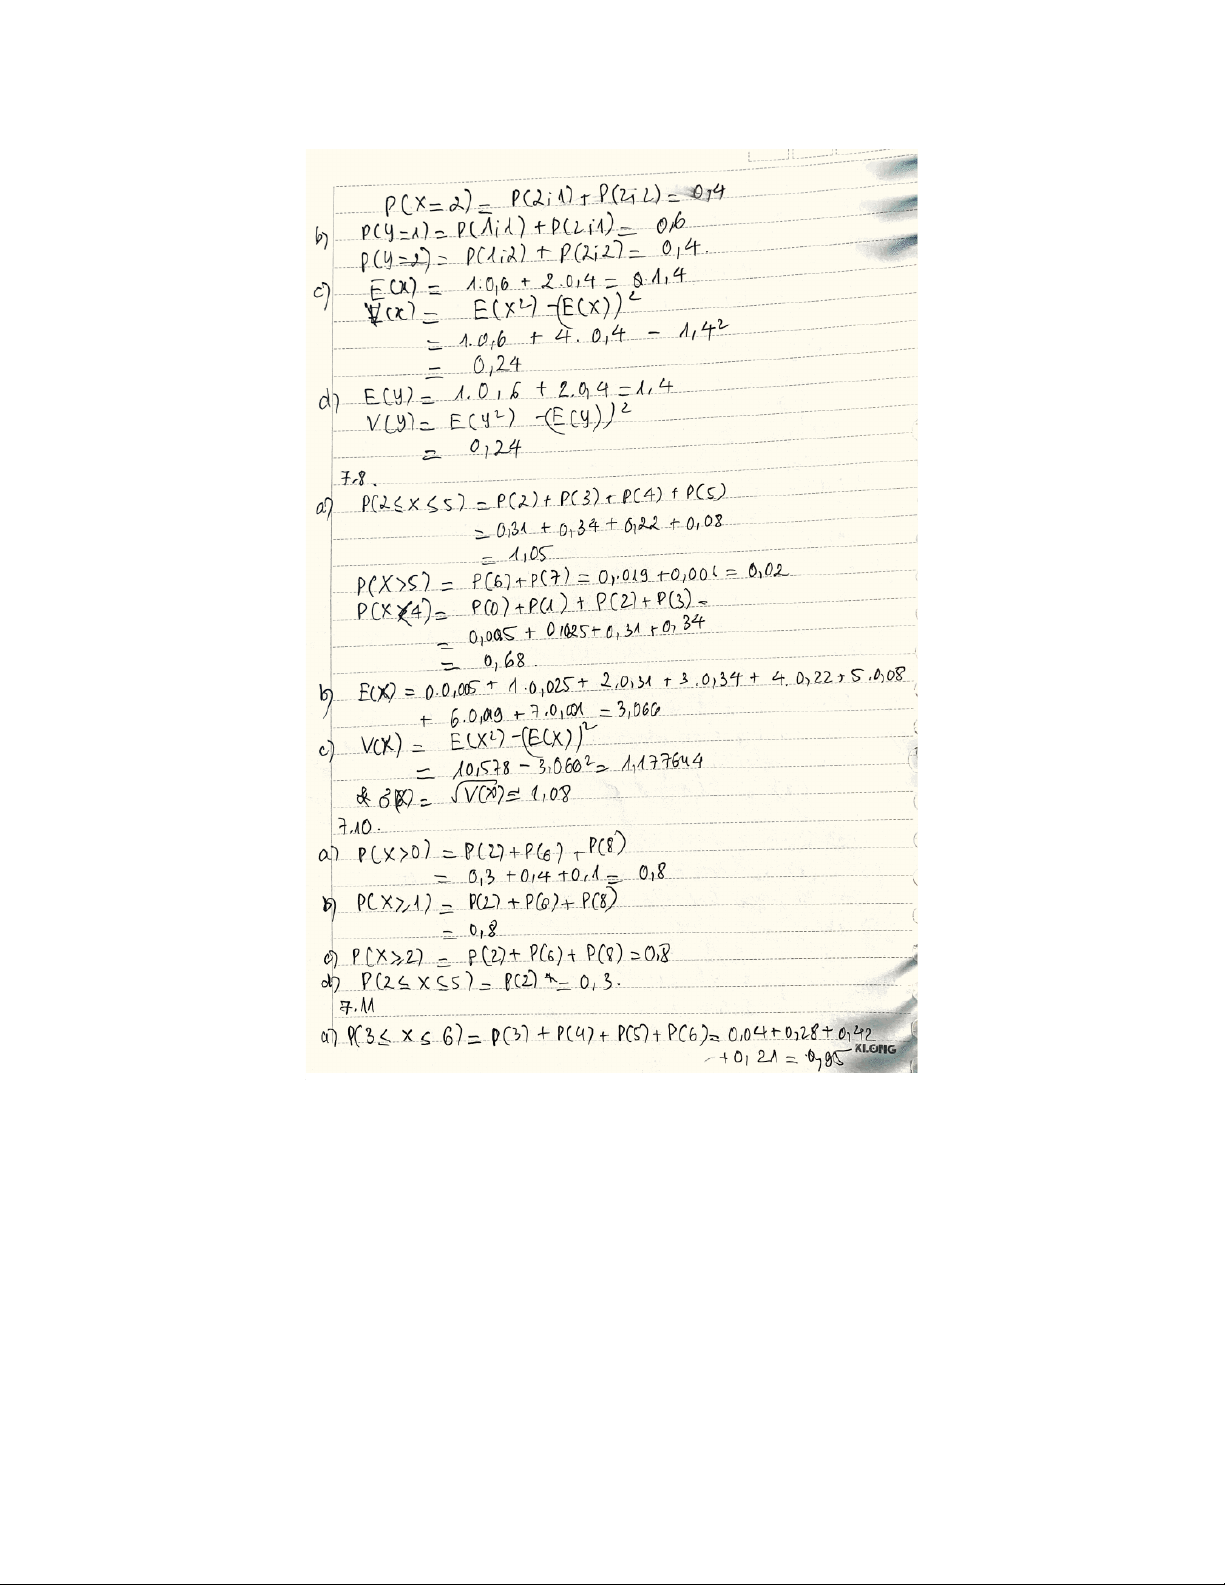 P(X=2) = P(2;1) + P(2;2) = 0,4
b) P(Y=1) = P(1;1) + P(2;1) = 0,6
P(Y=2) = P(1;2) + P(2;2) = 0,4.
c) E(X) = 1.0,6 + 2.0,4 = 1,4
V(X) = E(X²) - (E(X))²
= 1.0,6 + 4.0,4 - 1,4²
= 0,24
d) E(Y) = 1.0,6 + 2.0,4 = 1,4
V(Y) = E(Y²) - (E(Y))²
= 0,24
7.8.
a) P(2≤X≤5) = P(2) + P(3) + P(4) + P(5)
= 0,31 + 0,34 + 0,22 + 0,08
= 1,05
P(X>5) = P(6) + P(7) = 0,019 + 0,001 = 0,02
P(X<4) = P(0) + P(1) + P(2) + P(3) =
= 0,005 + 0,025 + 0,31 + 0,34
= 0,68.
b) E(X) = 0.0,005 + 1.0,025 + 2.0,31 + 3.0,34 + 4.0,22 + 5.0,08
+ 6.0,019 + 7.0,001 = 3,066
c) V(X) = E(X²) - (E(X))²
= 10,578 - 3,066² = 1,177644
= √V(X) = 1,08
7.10.
a) P(X>0) = P(2) + P(6) + P(8)
= 0,3 + 0,4 + 0,1 = 0,8
b) P(X≥1) = P(2) + P(6) + P(8)
= 0,8
c) P(X≥2) = P(2) + P(6) + P(8) = 0,8
d) P(2≤X≤5) = P(2) = 0,3.
7.11
a) P(3≤X≤6) = P(3) + P(4) + P(5) + P(6) = 0,04 + 0,28 + 0,42
+ 0,21 = 0,95
KLONG